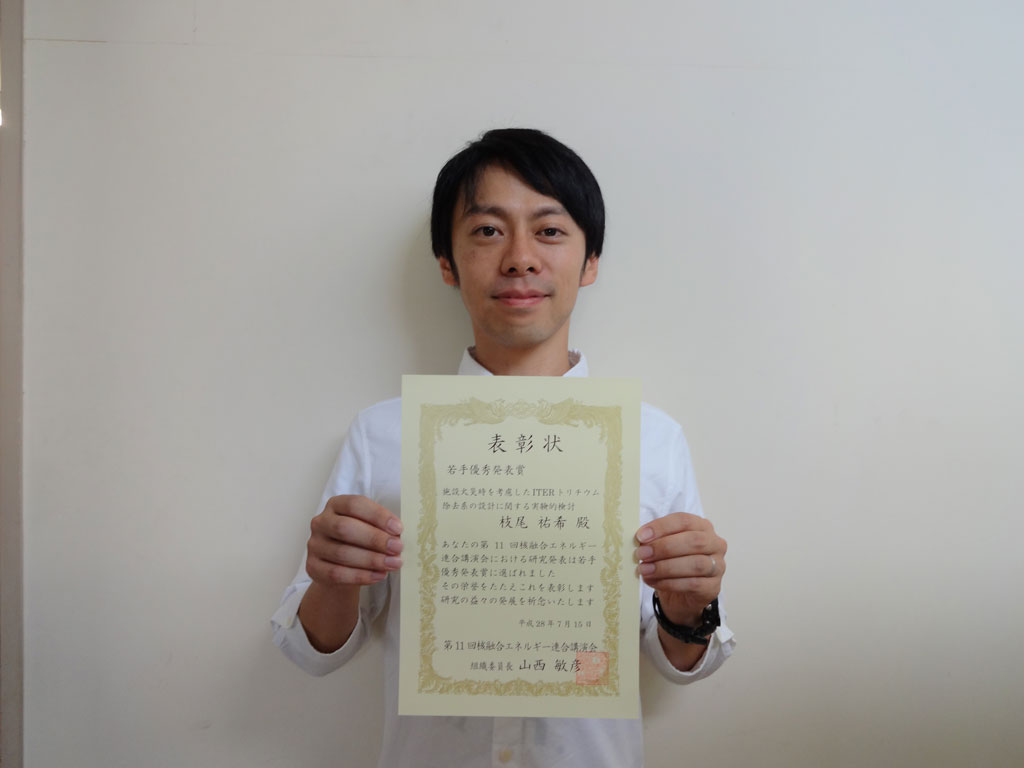 表彰状
若手優秀発表賞
施設火災時を考慮したITERトリチウム
除去系の設計に関する実験的検討
枝尾 祐希 殿
あなたの第 11 回核融合エネルギー
連合講演会における研究発表は若手
優秀発表賞に選ばれました
その栄誉をたたえこれを表彰します
研究の益々の発展を祈念いたします
平成28年7月15日
第11回核融合エネルギー連合講演会
組織委員長 山西 敏彦